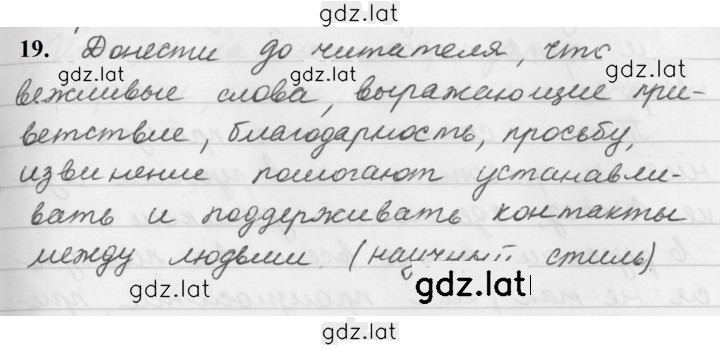 gdz.lat
19. Донести до читателя, что
gdz.lat gdz.lat
вежливые слова, выражающие при-
ветствие, благодарность, просьбу,
извинение помогают устанавли-
gdz.lat gdz.lat
вать и поддерживать контакты
между людьми. (научный стиль).
gdz.lat gdz.lat
gdz.lat